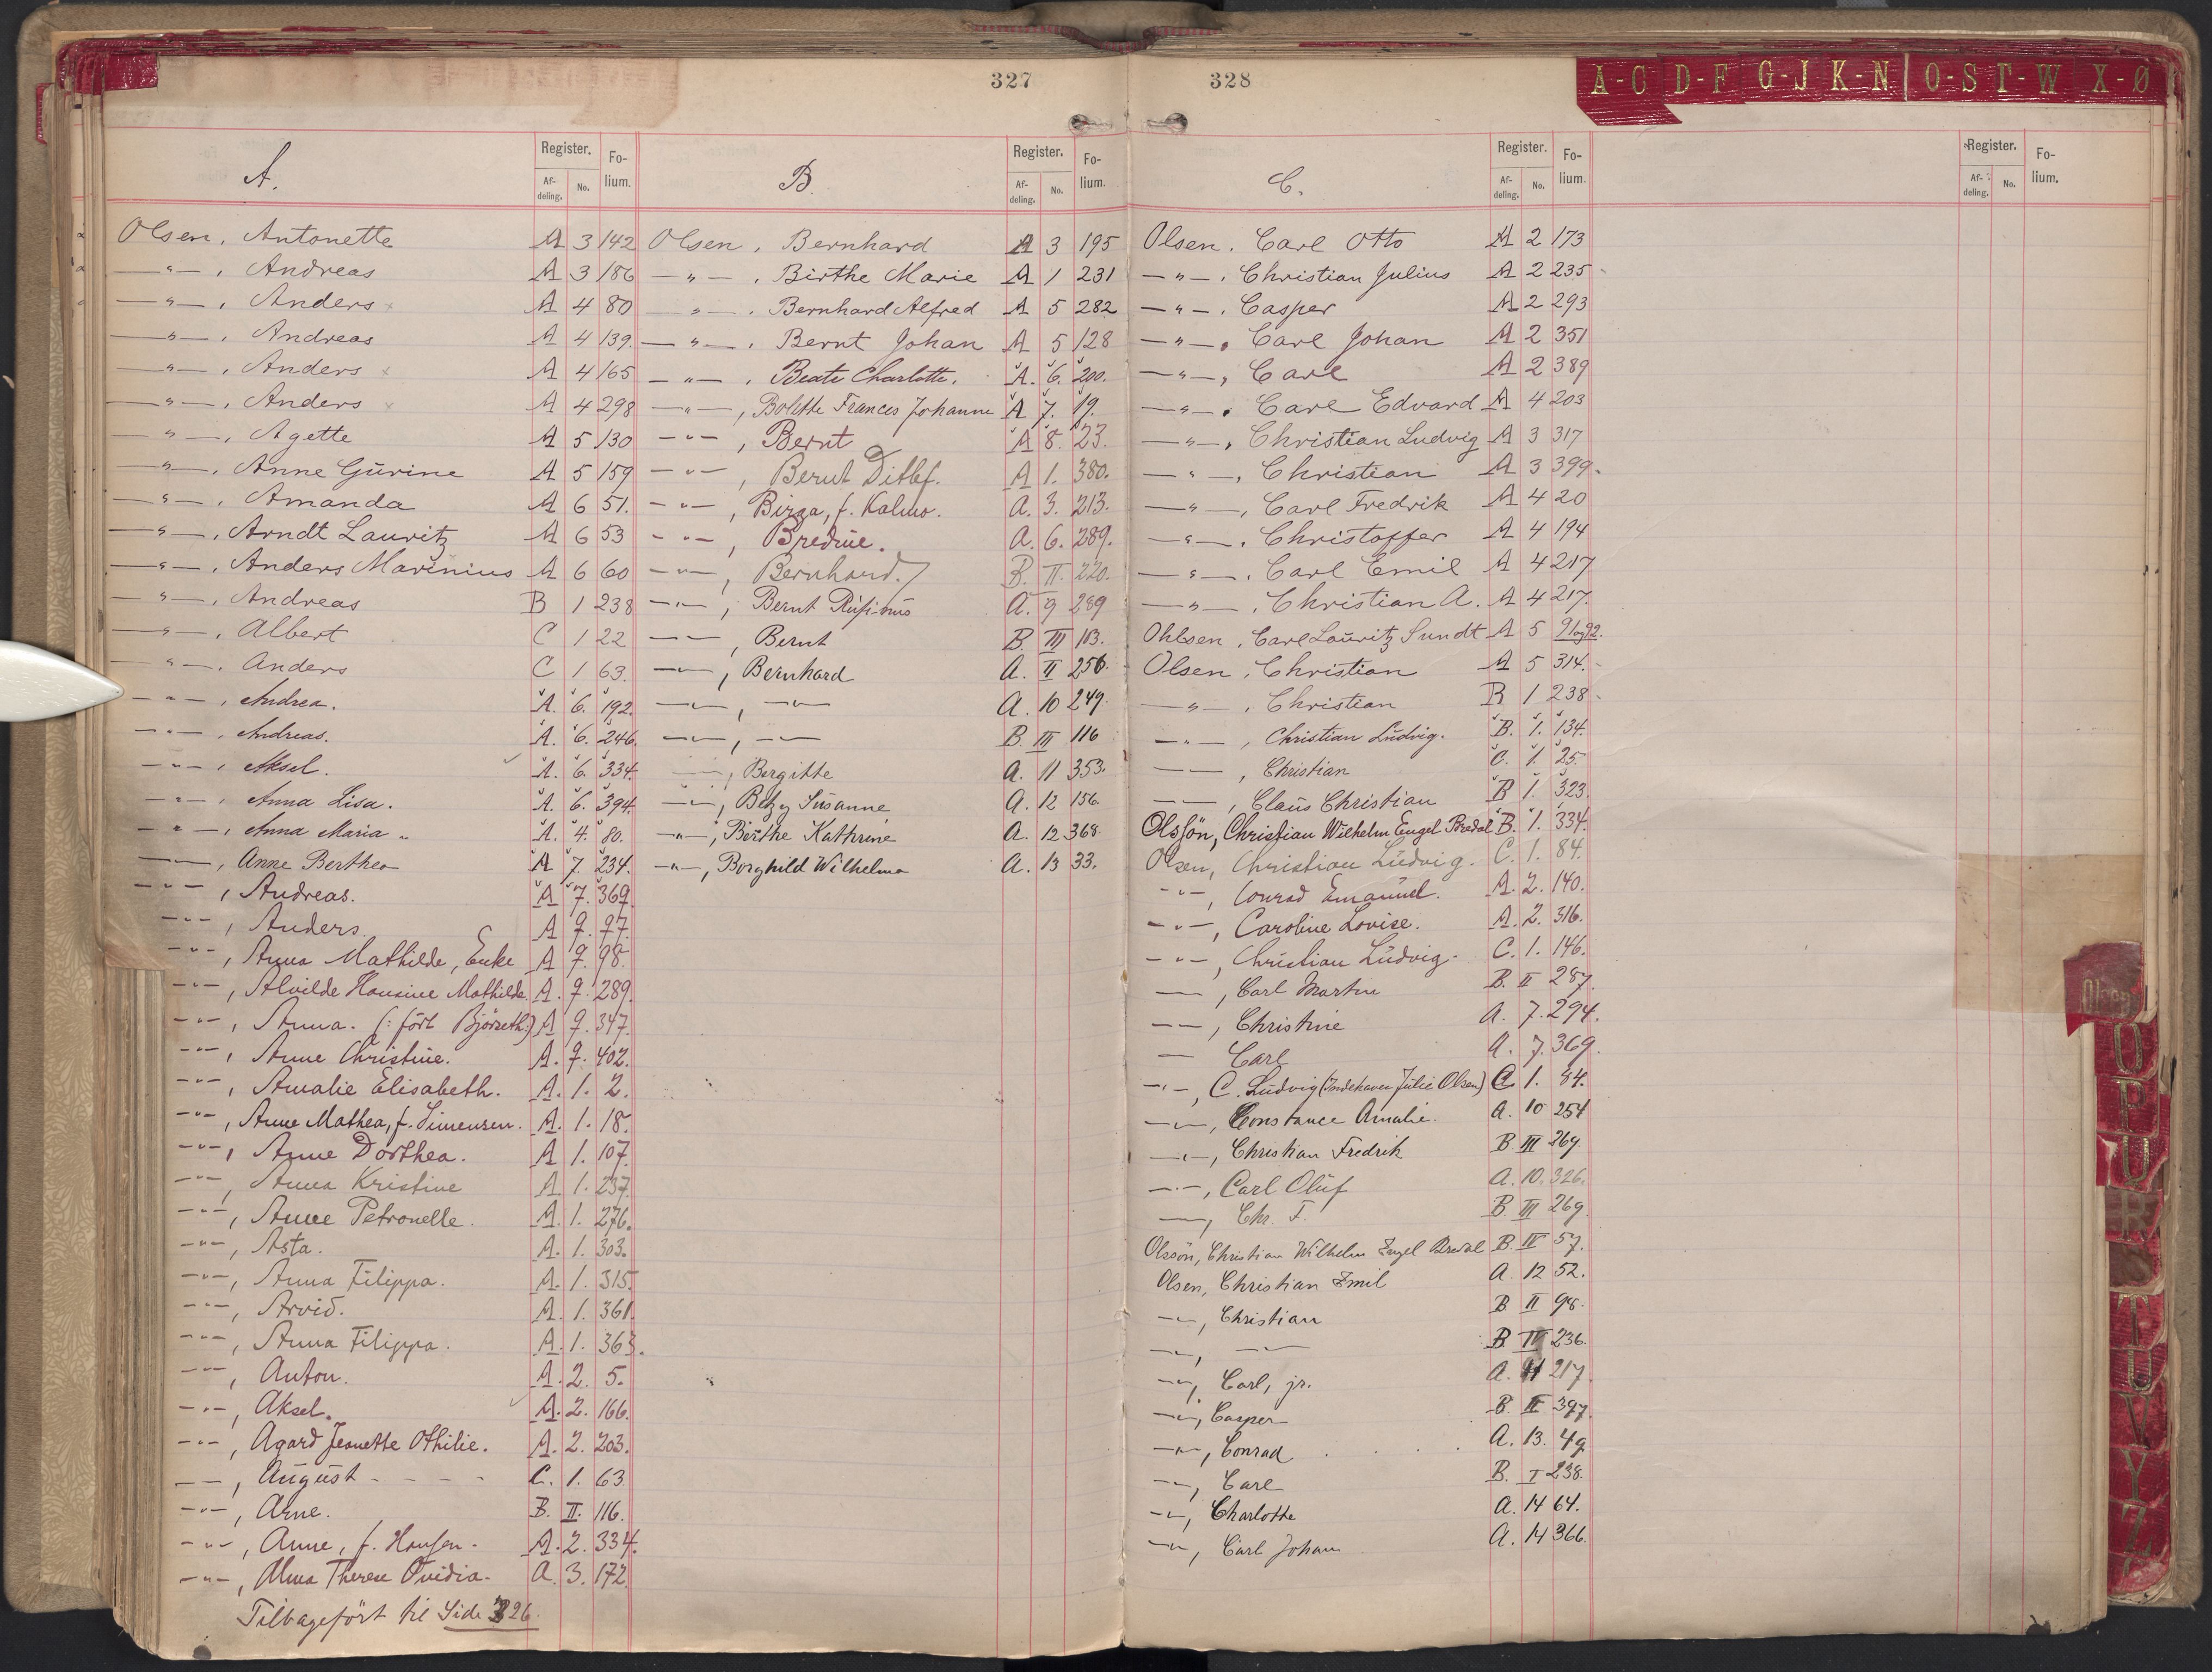 327
A.
Register.
Fo-
lium.
Af-
deling.
No.
B.
Register.
Fo-
lium.
Af-
deling.
No.
Olsen, Antonette A 3 142
—"—, Andreas A 3 186
—"—, Anders A 4 80
—"—, Andreas A 4 139.
—"—, Anders A 4 165
—"—, Anders A 4 298
—"—, Agette A 5 130
—"—, Anne Gurine A 5 159
—"—, Amanda A 6 51.
—"—, Arndt Lauritz A 6 53
—"—, Anders Marinius A 6 60
—"—, Andreas B 1 238
—"—, Albert C 1 22
—"—, Anders C 1 63.
—"—, Andrea. A. 6. 192.
—"—, Andreas. A. 6. 246.
—"—, Aksel. A. 6. 334.
—"—, Anna Lisa. A. 6. 394.
—"—, Anna Maria A. 4. 80.
—"—, Anne Berthea A 7. 234.
—"—, Andreas. A 7. 369.
—"—, Anders. A 9. 77.
—"—, Anna Mathilde, Enke A 9. 98.
—"—, Alvilde Hansine Mathilde. A. 9. 289.
—"—, Anna. (: fört Björseth:) A 9. 347.
—"—, Anne Christine. A. 9. 402.
—"—, Amalie Elisabeth. A. 1. 2.
—"—, Anne Mathea, f. Simensen. A. 1. 18.
—"—, Anne Dorthea. A 1. 107.
—"—, Anna Kristine A 1. 237.
—"—, Anne Petronelle. A. 1. 276.
—"—, Asta. A. 1. 303.
—"—, Anna Filippa. A. 1. 315.
—"—, Arvid. A. 1. 361.
—"—, Anna Filippa. A. 1. 363.
—"—, Anton. A. 2. 5.
—"—, Aksel. A. 2. 166.
—"—, Agard Jeanette Othilie. A. 2. 203.
—"—, August C. 1. 63
—"—, Arne. B. II. 116.
—"—, Anne, f. Hansen. A. 2. 334.
—"—, Alma Therese Ovidia. A. 3. 172.
Tilbageført til Side 326.
Olsen, Bernhard A 3 195
—"—, Birthe Marie A 1 231
—"—, Bernhard Alfred A 5 282
—"—, Bernt Johan A 5 128
—"—, Beate Charlotte. A. 6. 200.
—"—, Bolette Frances Johanne A 7. 19.
—"—, Bernt A 8. 23.
—"—, Bernt Ditlef. A 1. 380.
—"—, Birga, f. Kalmo. A. 3. 213.
—"—, Bredine. A. 6. 289.
—"—, Bernhard. B. II. 220.
—"—, Bernt Rufinus A. 9 289
—"—, Bernt B. III 113.
—"—, Bernhard A. II 256.
—"—, —"— A. 10 249.
—"—, —"— B. III 116
—"—, Bergitte A. 11 353.
—"—, Betzy Susanne A. 12 156.
—"—, Berthe Kathrine A. 12 368
—"—, Borghild Wilhelma A. 13 33.
328
A-C D-F G-J K-N O-S T-W X-Ø
C.
Register.
Fo-
lium.
Af-
deling.
No.
Register.
Fo-
lium.
Af-
deling.
No.
Olsen, Carl Otto A 2 173
—"—, Christian Julius A 2 235
—"—, Casper A 2 293
—"—, Carl Johan A 2 351
—"—, Carl A 2 389
—"—, Carl Edvard A 4 203
—"—, Christian Ludvig A 3 317
—"—, Christian A 3 399.
—"—, Carl Fredrik A 4 20
—"—, Christoffer A 4 194
—"—, Carl Emil A 4 217
—"—, Christian A. A 4 217.
Ohlsen, Carl Lauritz Sundt A 5 91og92.
Olsen, Christian A 5 314.
—"—, Christian B 1 238
—"—, Christian Ludvig. B. 1. 134.
—"—, Christian C. 1. 25.
—"—, Claus Christian B 1. 323.
Olssön, Christian Wilhelm Engel Bredal B. 1. 334.
Olsen, Christian Ludvig. C. 1. 84.
—"—, Conrad Emanuel. A. 2. 140.
—"—, Caroline Lovise. A. 2. 316.
—"—, Christian Ludvig. C. 1. 146.
—"—, Carl Martin B. II 287.
—"—, Christine A. 7. 294.
— Carl A. 7. 369.
—"—, C. Ludvig (Indehaver Julie Olsen) C 1. 84.
—"—, Constance Amalie. A. 10 254
—"—, Christian Fredrik B III 269
—"—, Carl Oluf A. 10. 326.
—"—, Chr. F. B. III 269.
Olssön, Christian Wilhelm Engel Bredal B. IV 57.
Olsen, Christian Emil A 12 52.
—"—, Christian B II 98.
—"—, —"— B. IV 236.
—"—, Carl, jr. A. 11 217.
—"—, Casper B. II 397.
—"—, Conrad A. 13. 49.
—"—, Carl B. I 238.
—"—, Charlotte A. 14 64.
—"—, Carl Johan A. 14 366.
Olsen
O
P
U
R
T
U
V
Y
Z